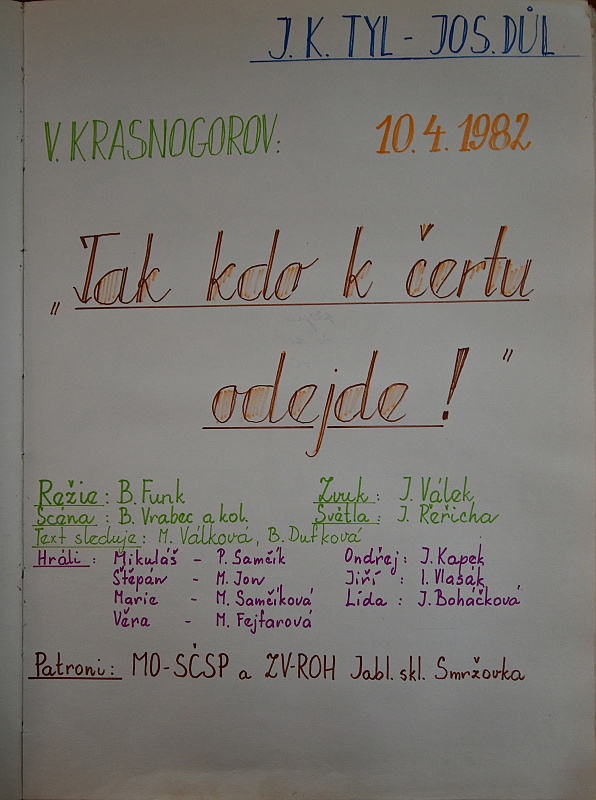 J. K. TYL - JOS. DŮL
V. KRASNOGOROV: 10. 4. 1982
„Tak kdo k čertu
odejde!"
Režie: B. Funk Zvuk: J. Válek
Scéna: B. Vrabec a kol. Světla: J. Řeřicha
Text sleduje: M. Válková, B. Dufková
Hráli: Mikuláš - P. Samčík Ondřej: J. Kopek
Štěpán - M. Jon Jiří: I. Vlasák
Marie - M. Samčíková Lída: J. Boháčková
Věra - M. Fejfarová
Patroni: MO-SČSP a ZV-ROH Jabl. skl. Smržovka